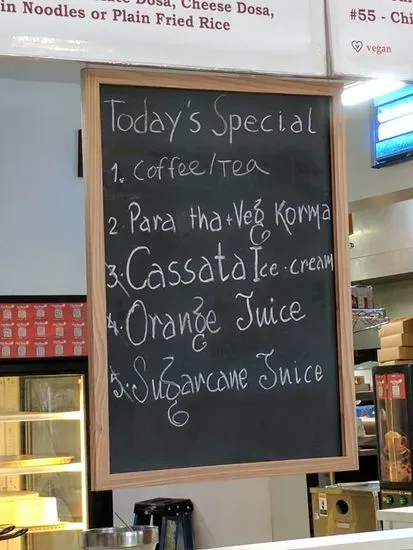 Dosa, Cheese Dosa,
in Noodles or Plain Fried Rice
#55 - Chi
vegan
Today's Special
1. Coffee/Tea
2. Para tha+Veg Korma
3. Cassata Ice-cream
4. Orange Juice
5. Sugarcane Juice